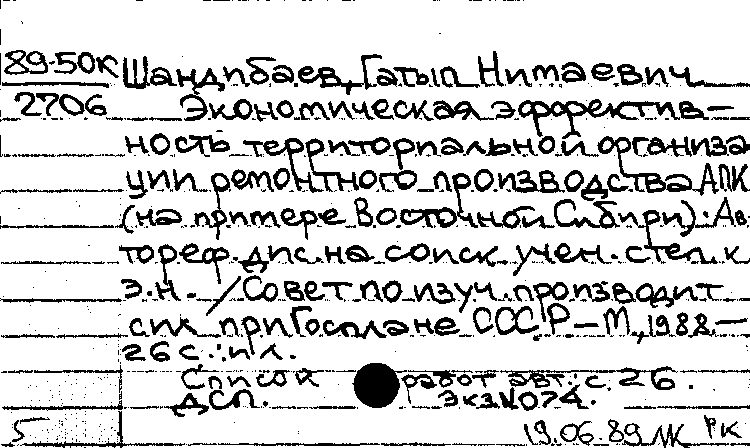 89-50К
2706
Шандибаев, Гатып Нимаевич
Экономическая эффектив-
ность территориальной организа
ции ремонтного производства АПК
(на примере Восточной Сибири): Ав
тореф. дис. на соиск. учен. степ. к.
э.н. / Совет по изуч. производит
сил при Госплане СССР - М., 1988. -
26 с.: ил.
Список работ авт.: с. 26.
ДСП. Экз. N 074.
5 19.06.89 РК